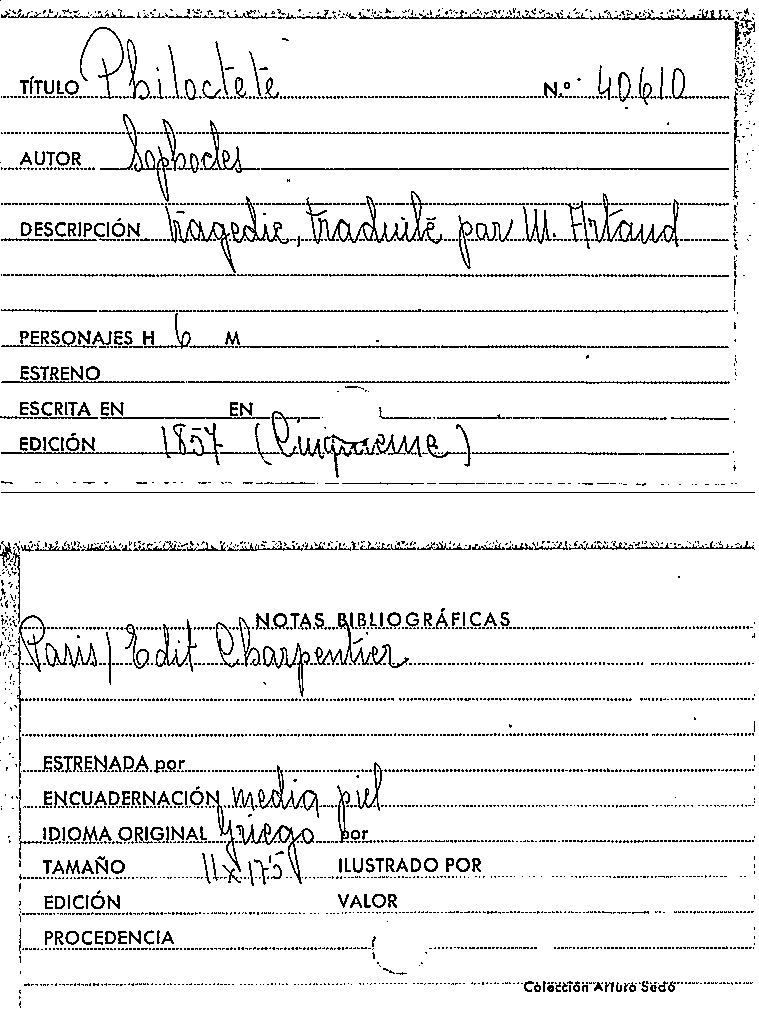 TÍTULO Philoctete N.º 40610
AUTOR Sophocles
DESCRIPCIÓN Tragedie, traduite par M. Artaud
PERSONAJES H 6 M
ESTRENO
ESCRITA EN EN
EDICIÓN 1857 (Cinquieme)
NOTAS BIBLIOGRÁFICAS
Paris / Edit Charpentier
ESTRENADA por
ENCUADERNACIÓN media piel
IDIOMA ORIGINAL Griego por
TAMAÑO 11x17'5 ILUSTRADO POR
EDICIÓN VALOR
PROCEDENCIA
Colección Arturo Sedó